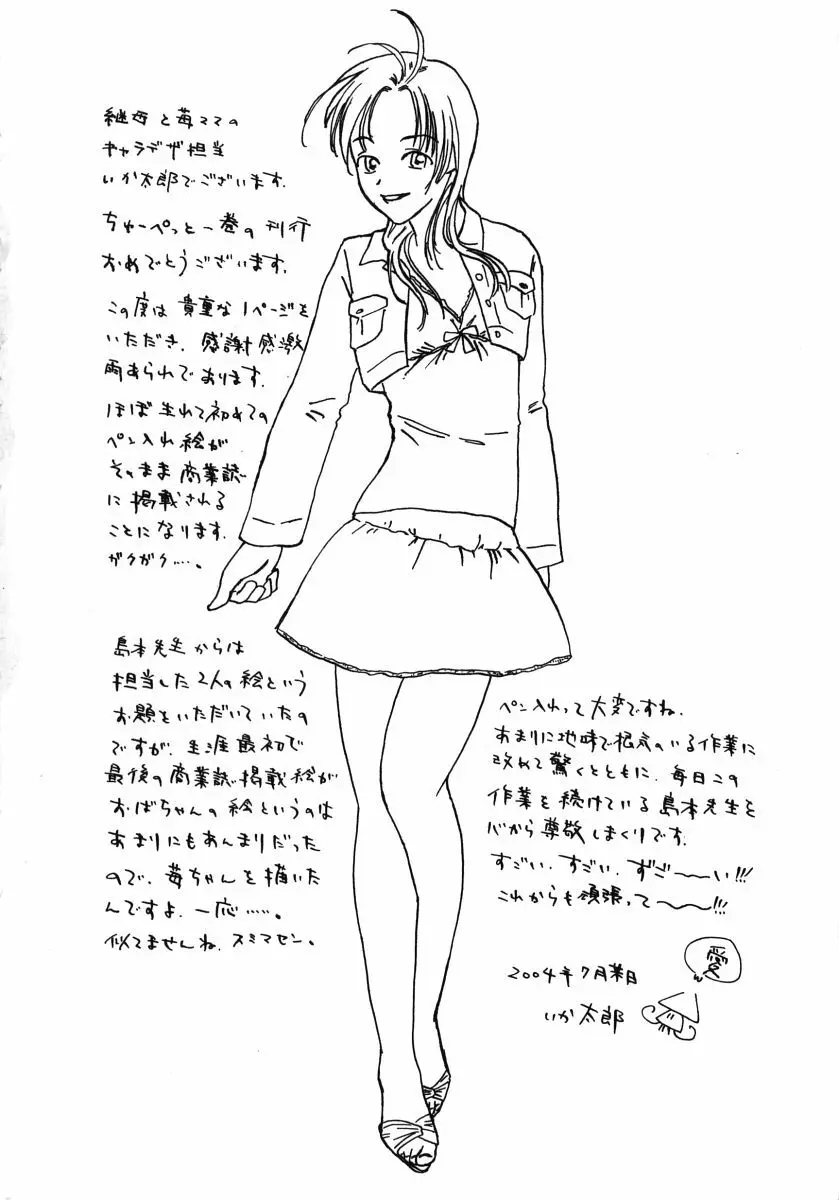 継母と苺ママの
キャラデザ担当
いか太郎でございます。
ちゅーぺっと一巻の刊行
おめでとうございます。
この度は貴重な1ページを
いただき、感謝感激
雨あられであります。
ほぼ生れて初めての
ペン入れ絵が
そのまま商業誌
に掲載される
ことになります。
ガクガク……。
島本先生からは
担当した2人の絵という
お題をいただいていたの
ですが、生涯最初で
最後の商業誌掲載絵が
おばちゃんの絵というのは
あまりにもあんまりだった
ので、苺ちゃんを描いた
んですよ、一応……。
似てませんね、スミマセン。
ペン入れって大変ですね。
あまりに地味で根気のいる作業に
改めて驚くとともに、毎日この
作業を続けている島本先生を
心から尊敬しまくりです。
すごい、すごい、すご〜〜い!!!
これからも頑張って〜〜!!!
愛
2004年7月某日
いか太郎